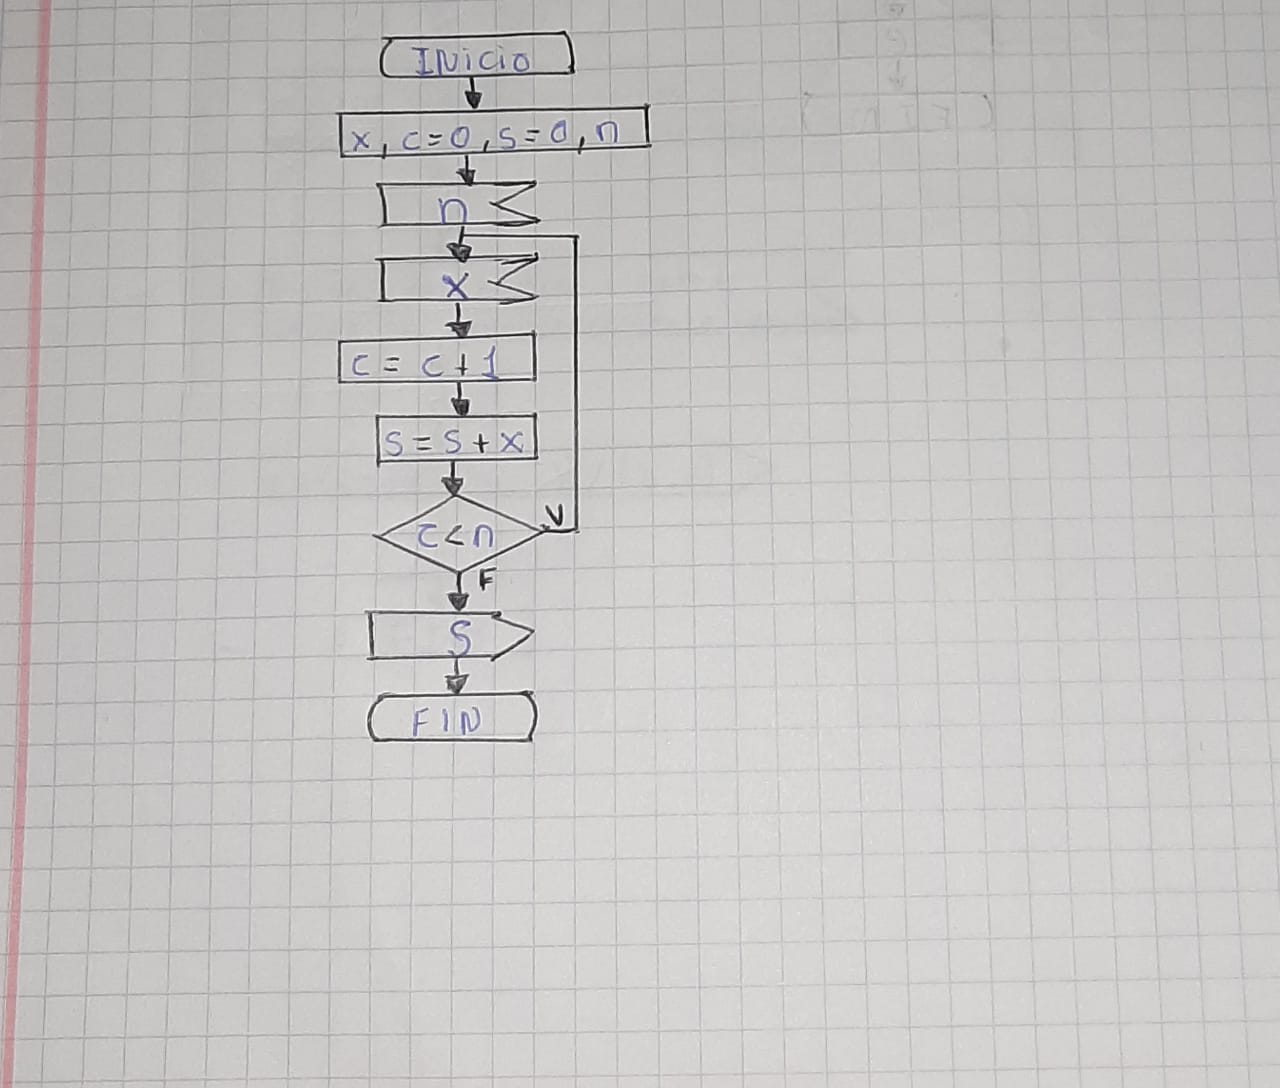 INICIO
x, c=0, s=0, n
n
x
c = c + 1
s = s + x
c < n V
F
S
FIN